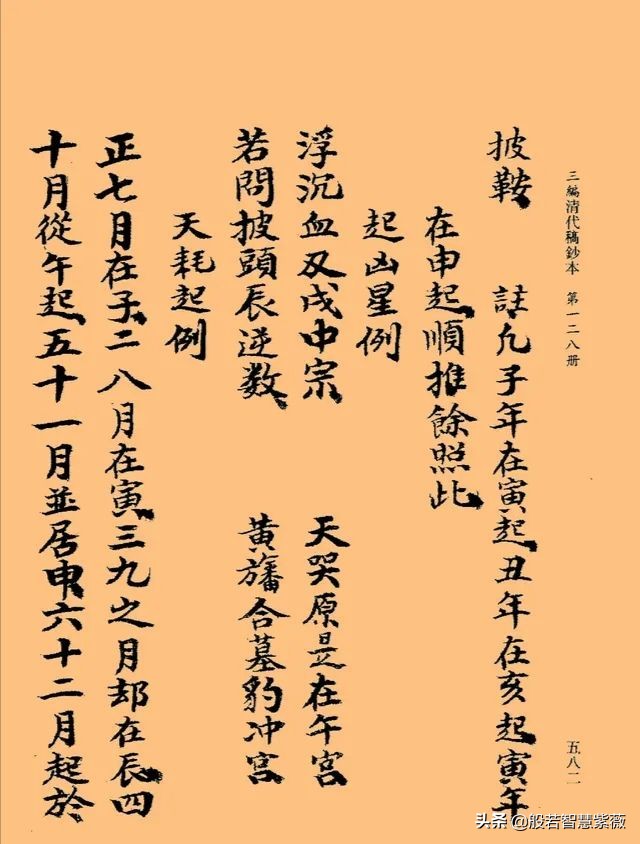 三編清代稿鈔本 第一二八册
五八二
披鞍 註凢子年在寅起丑年在亥起寅年
在申起順推餘照此
起凶星例
浮沉血刄戌中宗 天哭原是在午宮
若問披頭辰逆数 黄旛合墓豹冲宮
天耗起例
正七月在子二八月在寅三九之月却在辰四
十月從午起五十一月並居申六十二月起於
头条 @般若智慧紫薇